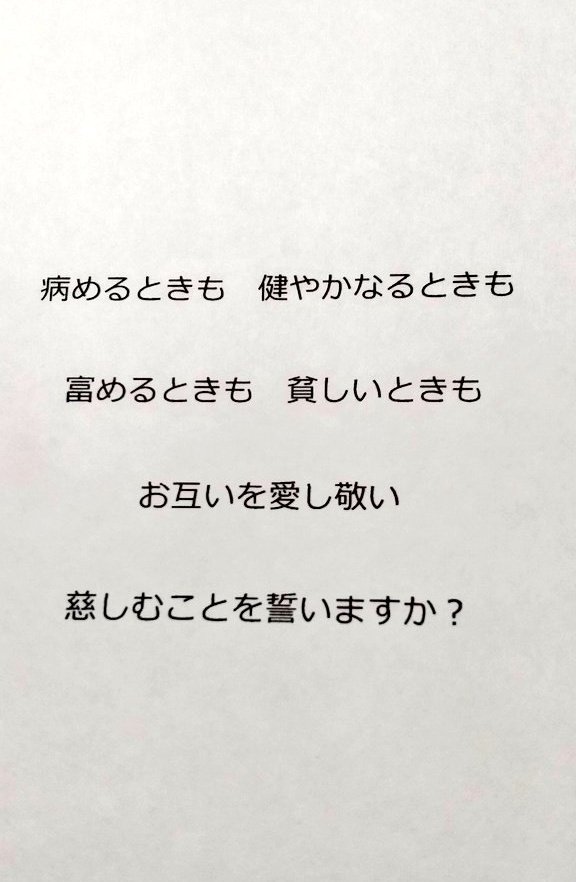 病めるときも　健やかなるときも
富めるときも　貧しいときも
お互いを愛し敬い
慈しむことを誓いますか？